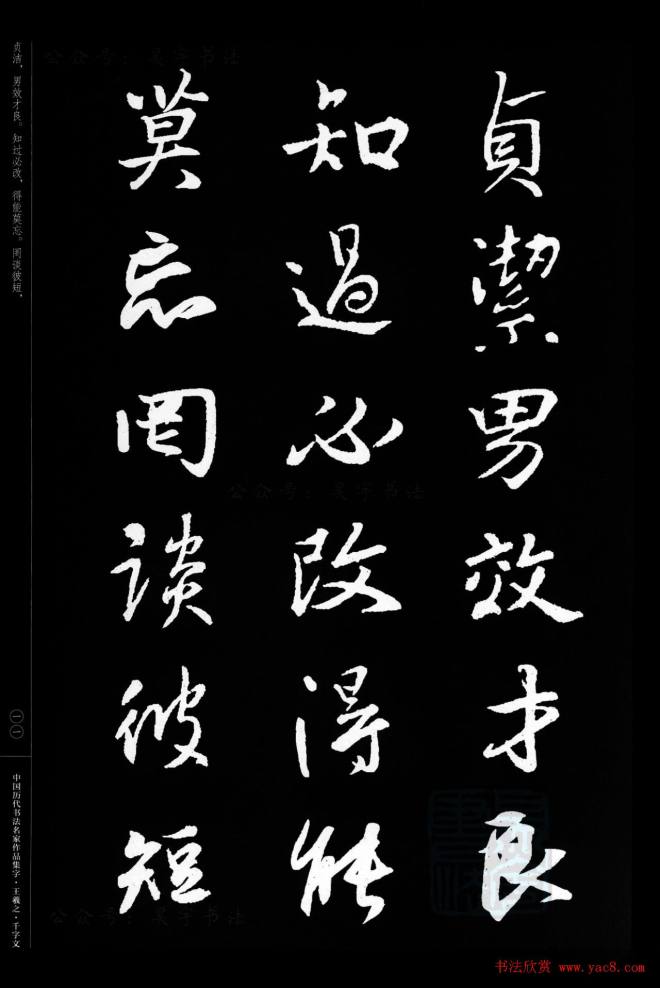 貞潔男效才良
知過必改得能
莫忘罔談彼短
贞洁，男效才良。知过必改，得能莫忘。罔谈彼短，
一一
中国历代书法名家作品集字·王羲之·千字文
公众号：吴宇书法
公众号：吴宇书法
公众号：吴宇书法
书法欣赏 www.yac8.com